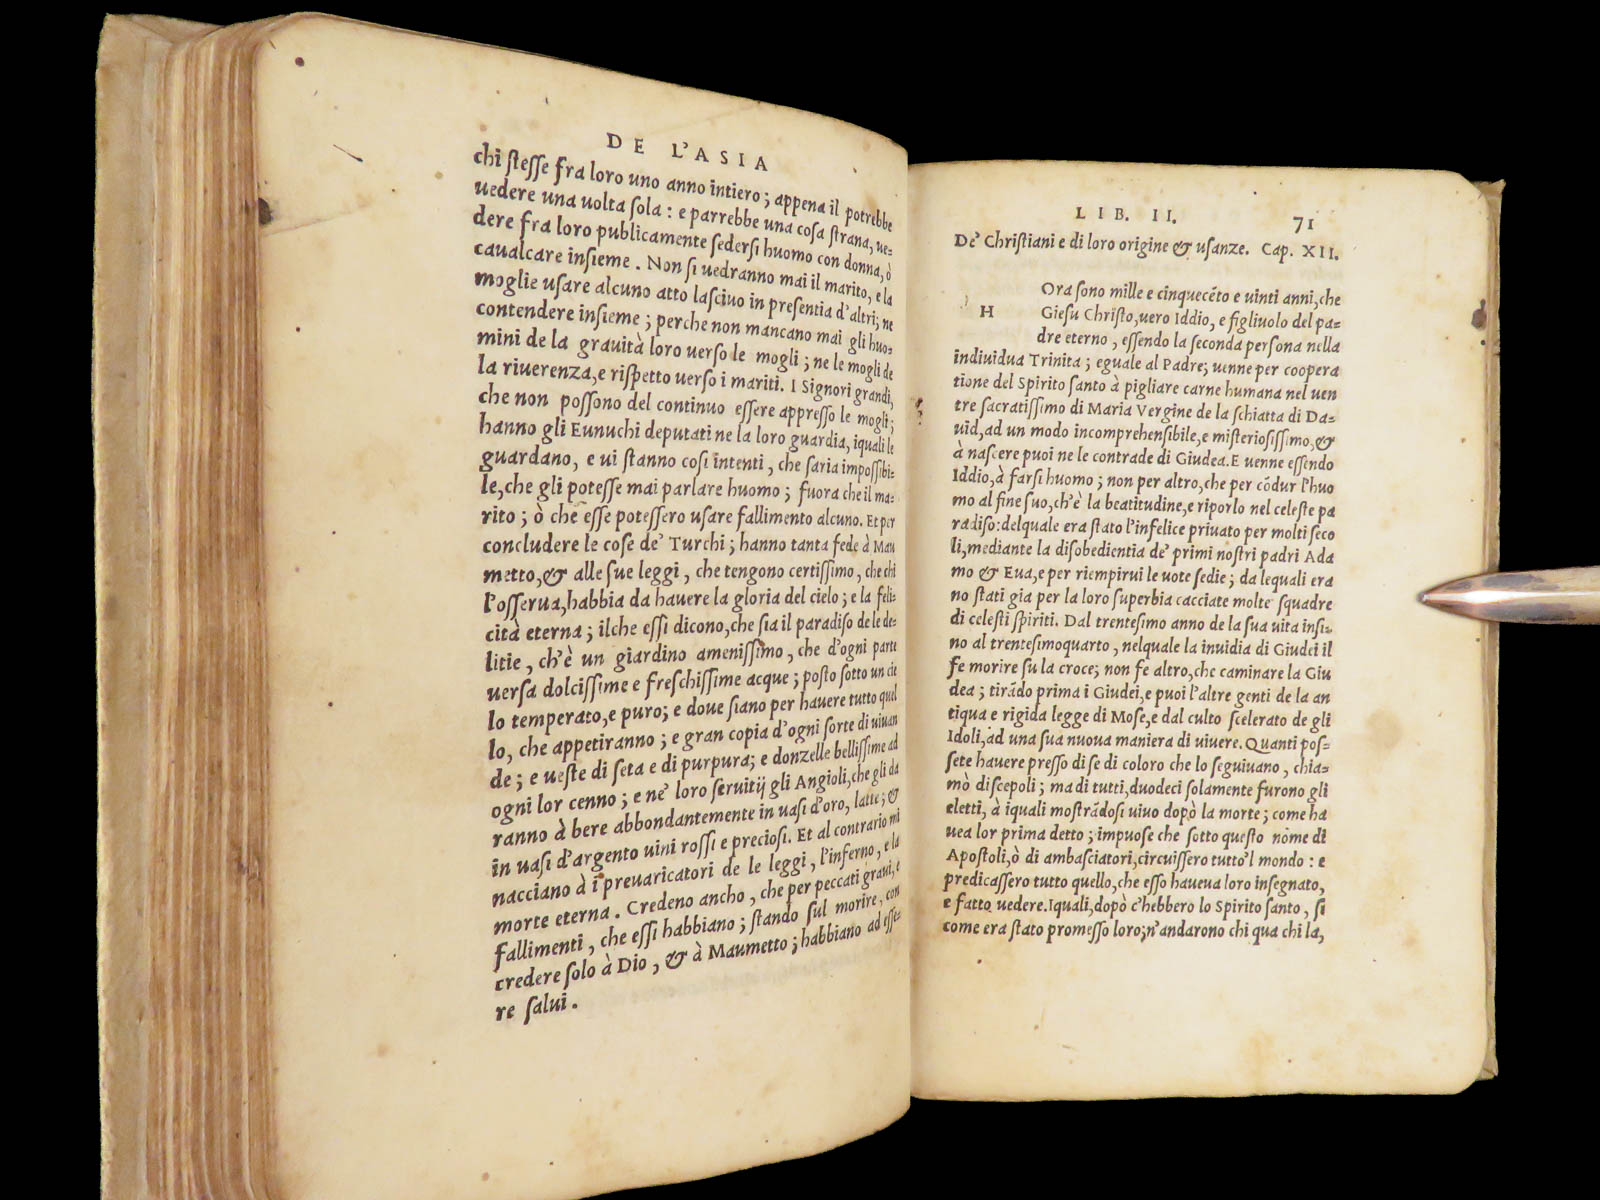 DE L'ASIA
chi stesse fra loro uno anno intiero; appena il potrebbe
uedere una uolta sola: e parrebbe una cosa strana, ue-
dere fra loro publicamente sedersi huomo con donna, ò
caualcare insieme. Non si uedranno mai il marito, e la
moglie usare alcuno atto lasciuo in presentia d'altri; ne
contendere insieme; perche non mancano mai gli huo-
mini de la grauità loro uerso le mogli; ne le mogli de
la riuerenza, e rispetto uerso i mariti. I Signori grandi,
che non possono del continuo essere appresso le mogli;
hanno gli Eunuchi deputati ne la loro guardia, iquali le
guardano, e ui stanno cosi intenti, che saria impossibi-
le, che gli potesse mai parlare huomo; fuora che il ma-
rito; ò che esse potessero usare fallimento alcuno. Et per
concludere le cose de' Turchi; hanno tanta fede à Mau
metto, & alle sue leggi, che tengono certissimo, che chi
l'osserua, habbia da hauere la gloria del cielo; e la feli-
cità eterna; ilche essi dicono, che sia il paradiso de le de-
litie, ch'è un giardino amenissimo, che d'ogni parte
uersa dolcissime e freschissime acque; posto sotto un cie
lo temperato, e puro; e doue siano per hauere tutto quel
lo, che appetiranno; e gran copia d'ogni sorte di uiuan
de; e ueste di seta e di purpura; e donzelle bellissime ad
ogni lor cenno; e ne' loro seruitij gli Angioli, che gli da
ranno à bere abbondantemente in uasi d'oro, latte; &
in uasi d'argento uini rossi e preciosi. Et al contrario mi
nacciano à i preuaricatori de le leggi, l'inferno, e la
morte eterna. Credeno ancho, che per peccati graui, e
fallimenti, che essi habbiano; stando sul morire, con
credere solo à Dio, & à Maumetto; habbiano ad esse-
re salui.
LIB. II. 71
De' Christiani e di loro origine & usanze. Cap. XII.
Ora sono mille e cinquecẽto e uinti anni, che
H Giesu Christo, uero Iddio, e figliuolo del pa-
dre eterno, essendo la seconda persona nella
indiuidua Trinita; eguale al Padre; uenne per coopera
tione del Spirito santo à pigliare carne humana nel uen
tre sacratissimo di Maria Vergine de la schiatta di Da-
uid, ad un modo incomprehensibile, e misteriosissimo, &
à nascere puoi ne le contrade di Giudea. E uenne essendo
Iddio, à farsi huomo; non per altro, che per cõdur l'huo
mo al fine suo, ch'è la beatitudine, e riporlo nel celeste pa
radiso: delquale era stato l'infelice priuato per molti seco
li, mediante la disobedientia de' primi nostri padri Ada
mo & Eua, e per riempirui le uote sedie; da lequali era
no stati gia per la loro superbia cacciate molte squadre
di celesti spiriti. Dal trentesimo anno de la sua uita insi-
no al trentesimoquarto, nelquale la inuidia di Giudei il
fe morire su la croce; non fe altro, che caminare la Giu
dea; tirãdo prima i Giudei, e puoi l'altre genti de la an
tiqua e rigida legge di Mose, e dal culto scelerato de gli
Idoli, ad una sua nuoua maniera di uiuere. Quanti pos-
sete hauere presso di se di coloro che lo seguiuano, chia-
mò discepoli; ma di tutti, duodeci solamente furono gli
eletti, à iquali mostrãdosi uiuo dopò la morte; come ha
uea lor prima detto; impuose che sotto questo nome di
Apostoli, ò di ambasciatori, circuissero tutto'l mondo: e
predicassero tutto quello, che esso haueua loro insegnato,
e fatto uedere. Iquali, dopò c'hebbero lo Spirito santo, si
come era stato promesso loro; n'andarono chi qua chi la,